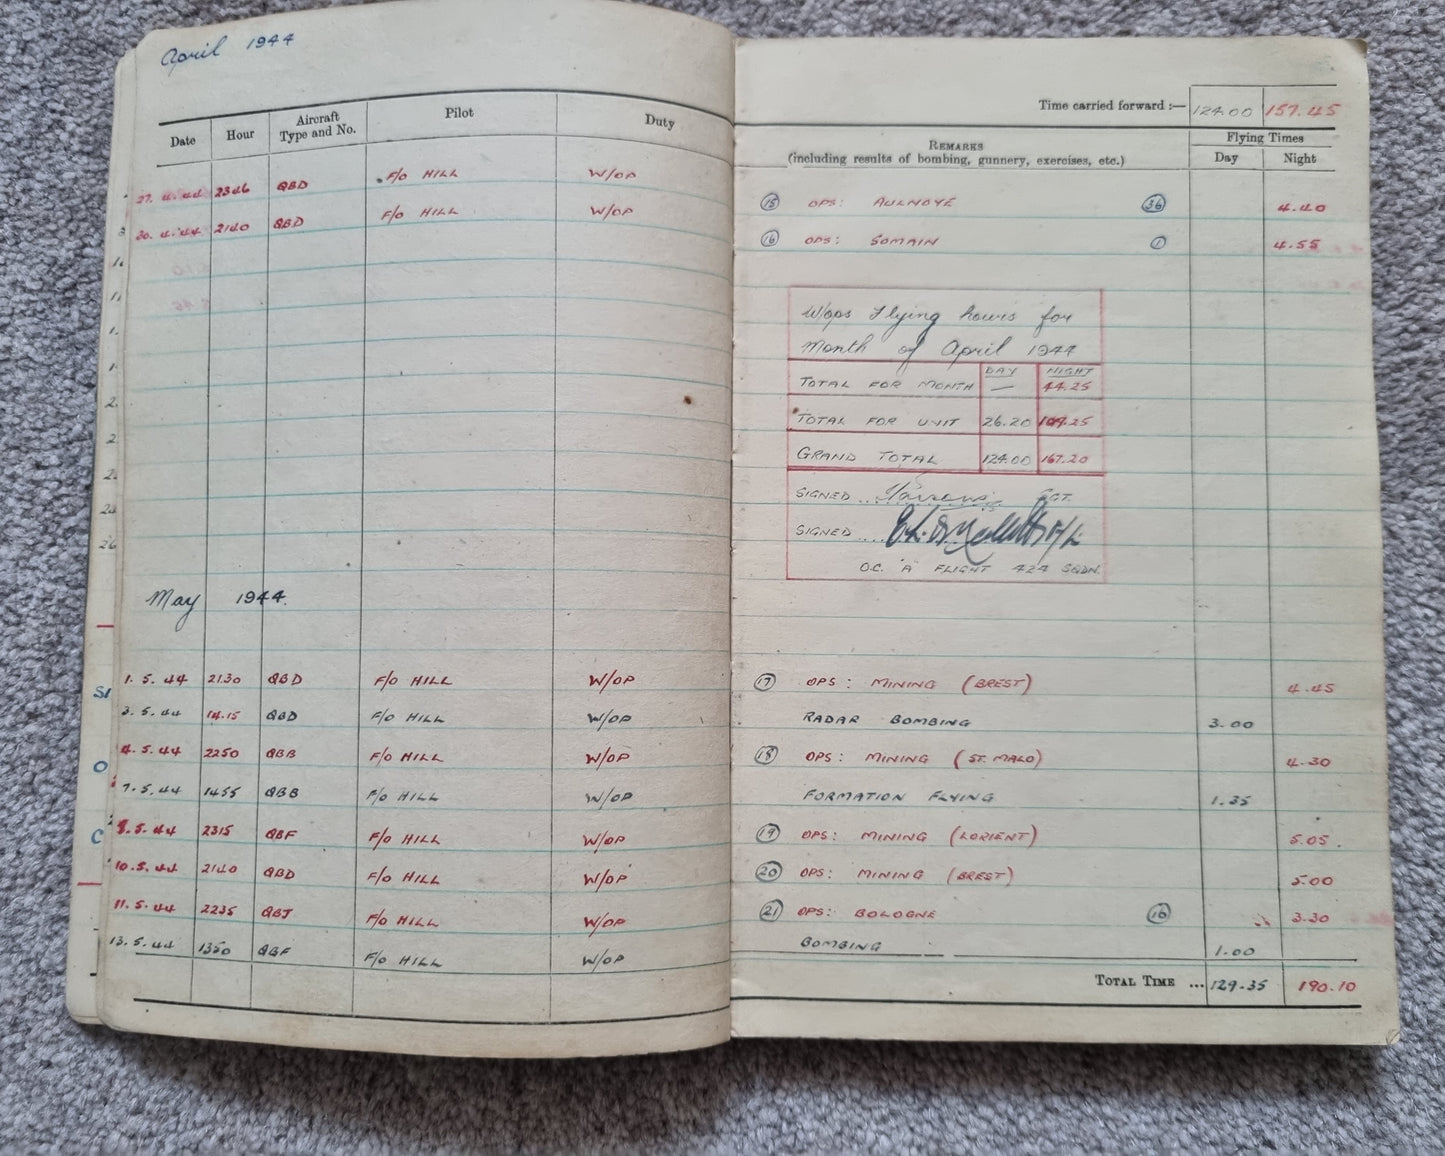 April 1944
Date Hour Aircraft Type and No. Pilot Duty
27.4.44 2346 QBD F/O HILL W/OP
30.4.44 2140 QBD F/O HILL W/OP
May 1944.
1.5.44 2130 QBD F/O HILL W/OP
3.5.44 14.15 QBD F/O HILL W/OP
4.5.44 2250 QBB F/O HILL W/OP
7.5.44 1455 QBB F/O HILL W/OP
8.5.44 2315 QBF F/O HILL W/OP
10.5.44 2140 QBD F/O HILL W/OP
11.5.44 2235 QBJ F/O HILL W/OP
13.5.44 1350 QBF F/O HILL W/OP
Time carried forward :— 124.00 157.45
REMARKS
(including results of bombing, gunnery, exercises, etc.)
Flying Times
Day Night
15 OPS: AULNOYE 36 4.40
16 OPS: SOMAIN 1 4.55
W/ops Flying hours for
Month of April 1944
DAY NIGHT
TOTAL FOR MONTH — 44.25
TOTAL FOR UNIT 26.20 109.25
GRAND TOTAL 124.00 167.20
SIGNED ... Parsons SGT.
SIGNED ....
O.C. "A" FLIGHT 424 SQDN.
17 OPS: MINING (BREST) 4.45
RADAR BOMBING 3.00
18 OPS: MINING (ST. MALO) 4.30
FORMATION FLYING 1.35
19 OPS: MINING (LORIENT) 5.05.
20 OPS: MINING (BREST) 5.00
21 OPS: BOLOGNE 16 3.30
BOMBING 1.00
TOTAL TIME ... 129.35 190.10